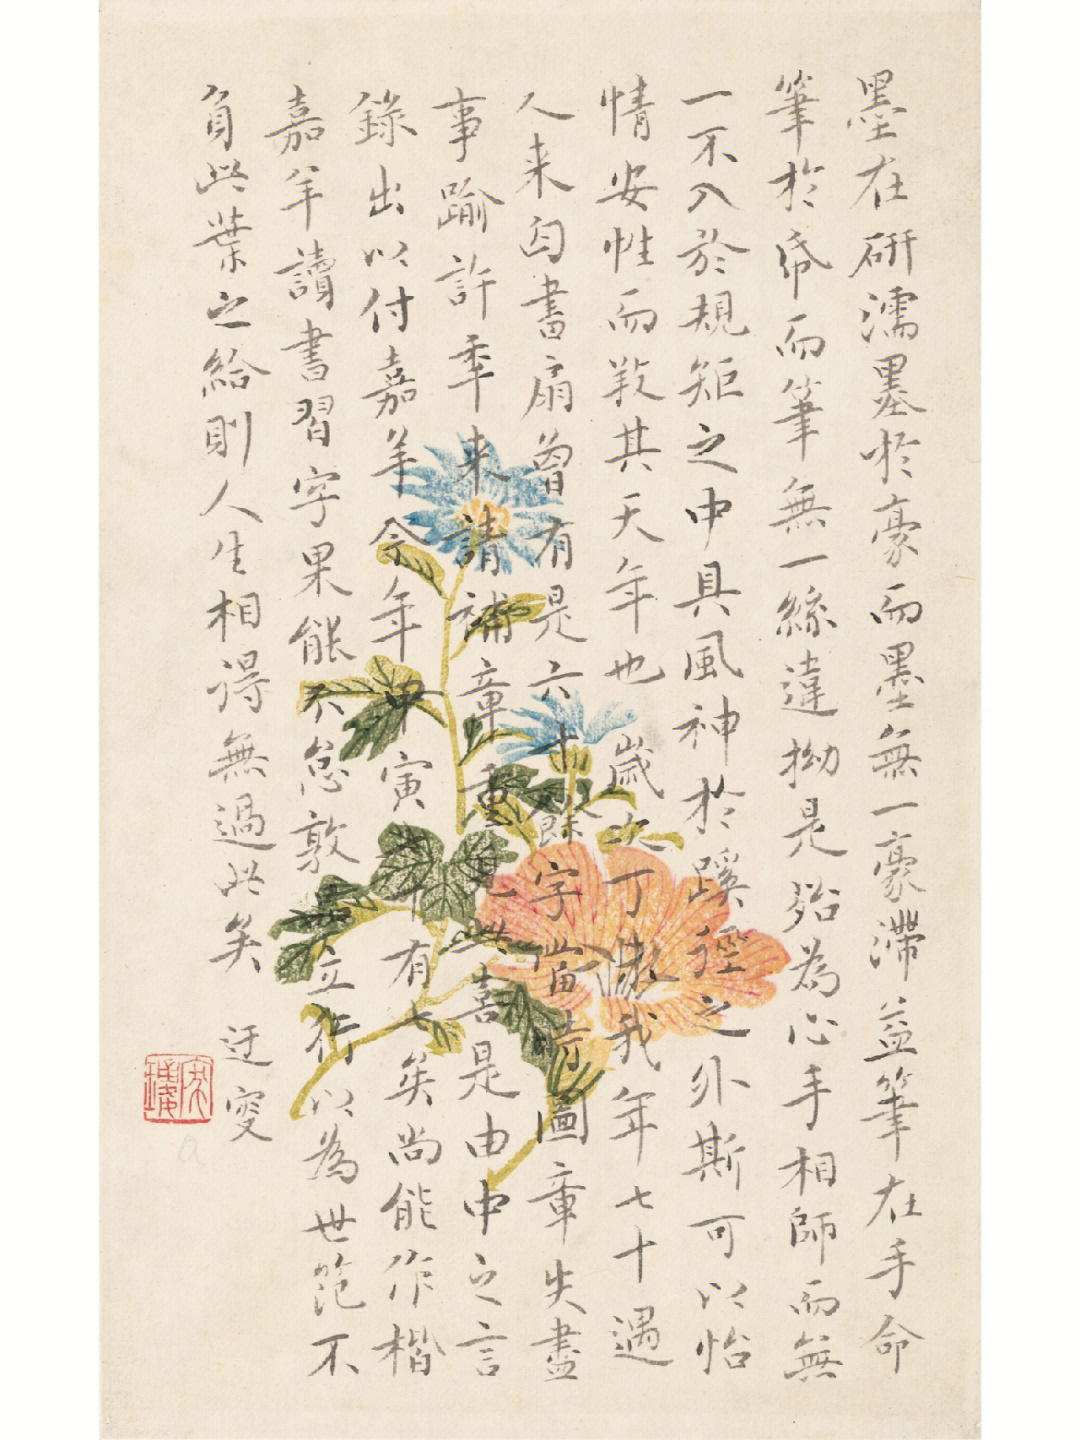 墨在研濡墨於豪而墨無一豪滯益筆在手命
筆於帋而筆無一絲違拗是殆為心手相師而無
一不入於規矩之中具風神於蹊徑之外斯可以怡
情安性而敩其天年也歲次丁我年七十遇
人来匄書扇曾有是六十餘字當時圖章失盡
事踰許年来請補章重見此喜是由中之言
錄出以付嘉羊今年甲寅六十有七矣尚能作楷
嘉羊讀書習字果能不怠敦品立行以為世范不
負此葉之給則人生相得無過此矣 迂叜